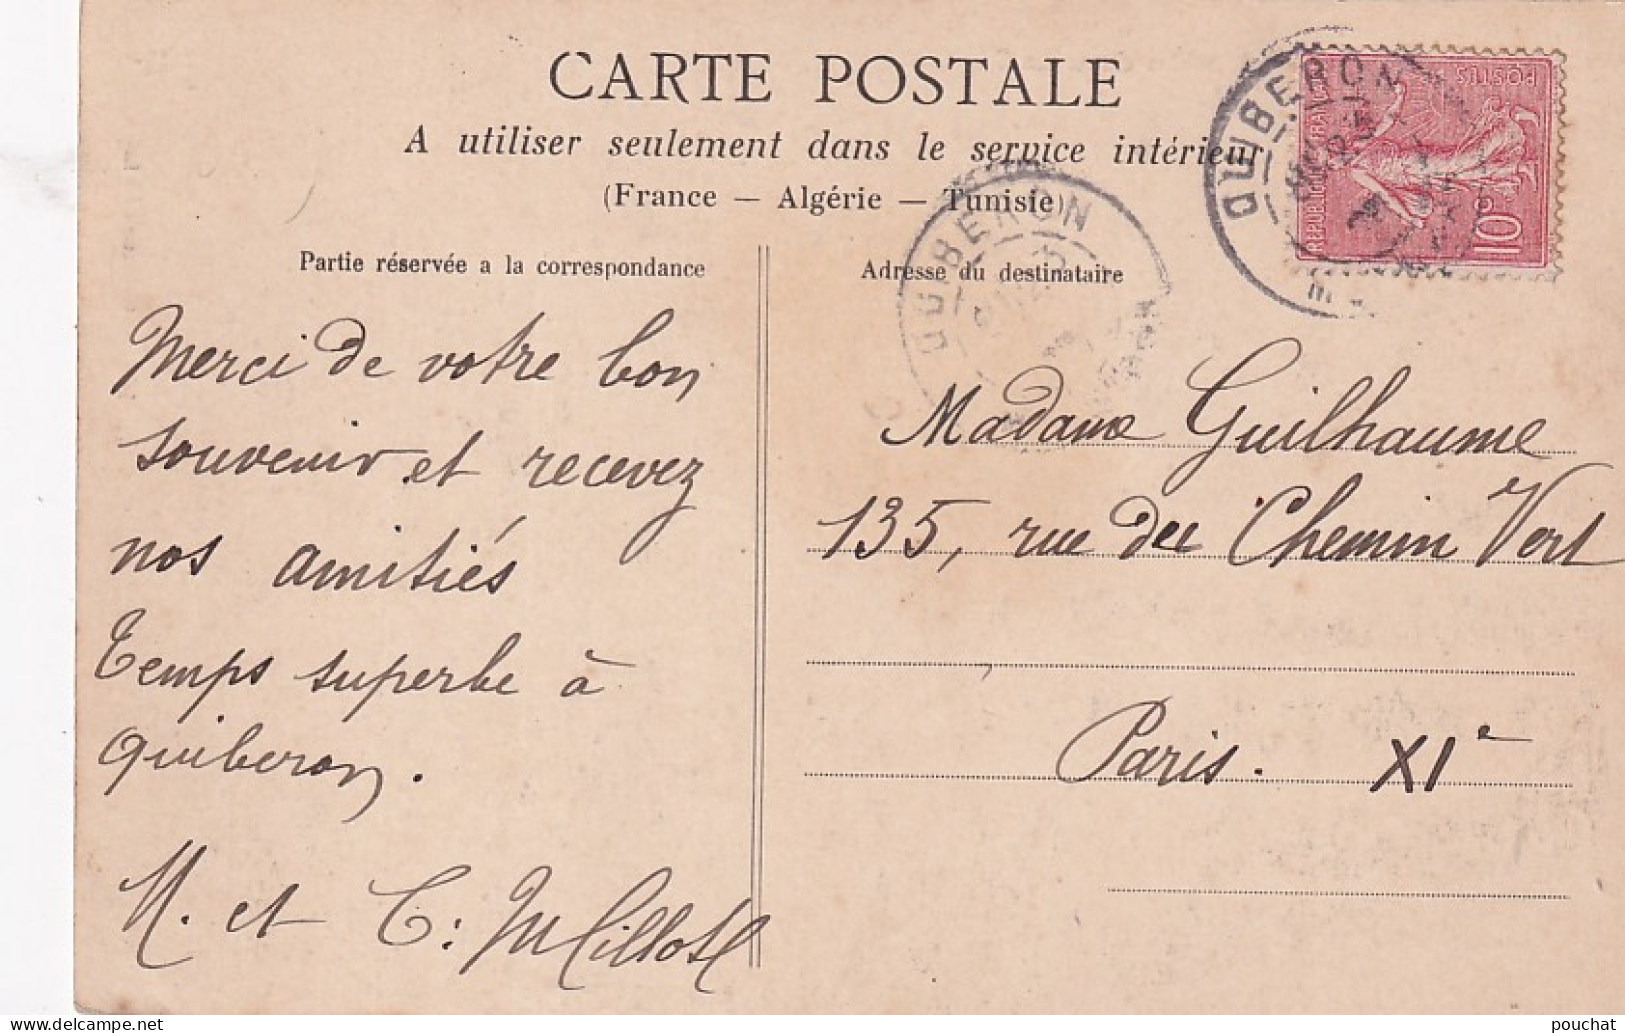 CARTE POSTALE
A utiliser seulement dans le service intérieur
(France — Algérie — Tunisie)
Partie réservée a la correspondance
Merci de votre bon
souvenir et recevez
nos amitiés
Temps superbe à
Quiberon.
M. et C. Millot
Adresse du destinataire
Madame Guilhaume
135, rue du Chemin Vert
Paris. XIe
QUIBERON
QUIBERON
POSTES
10c
pouchat